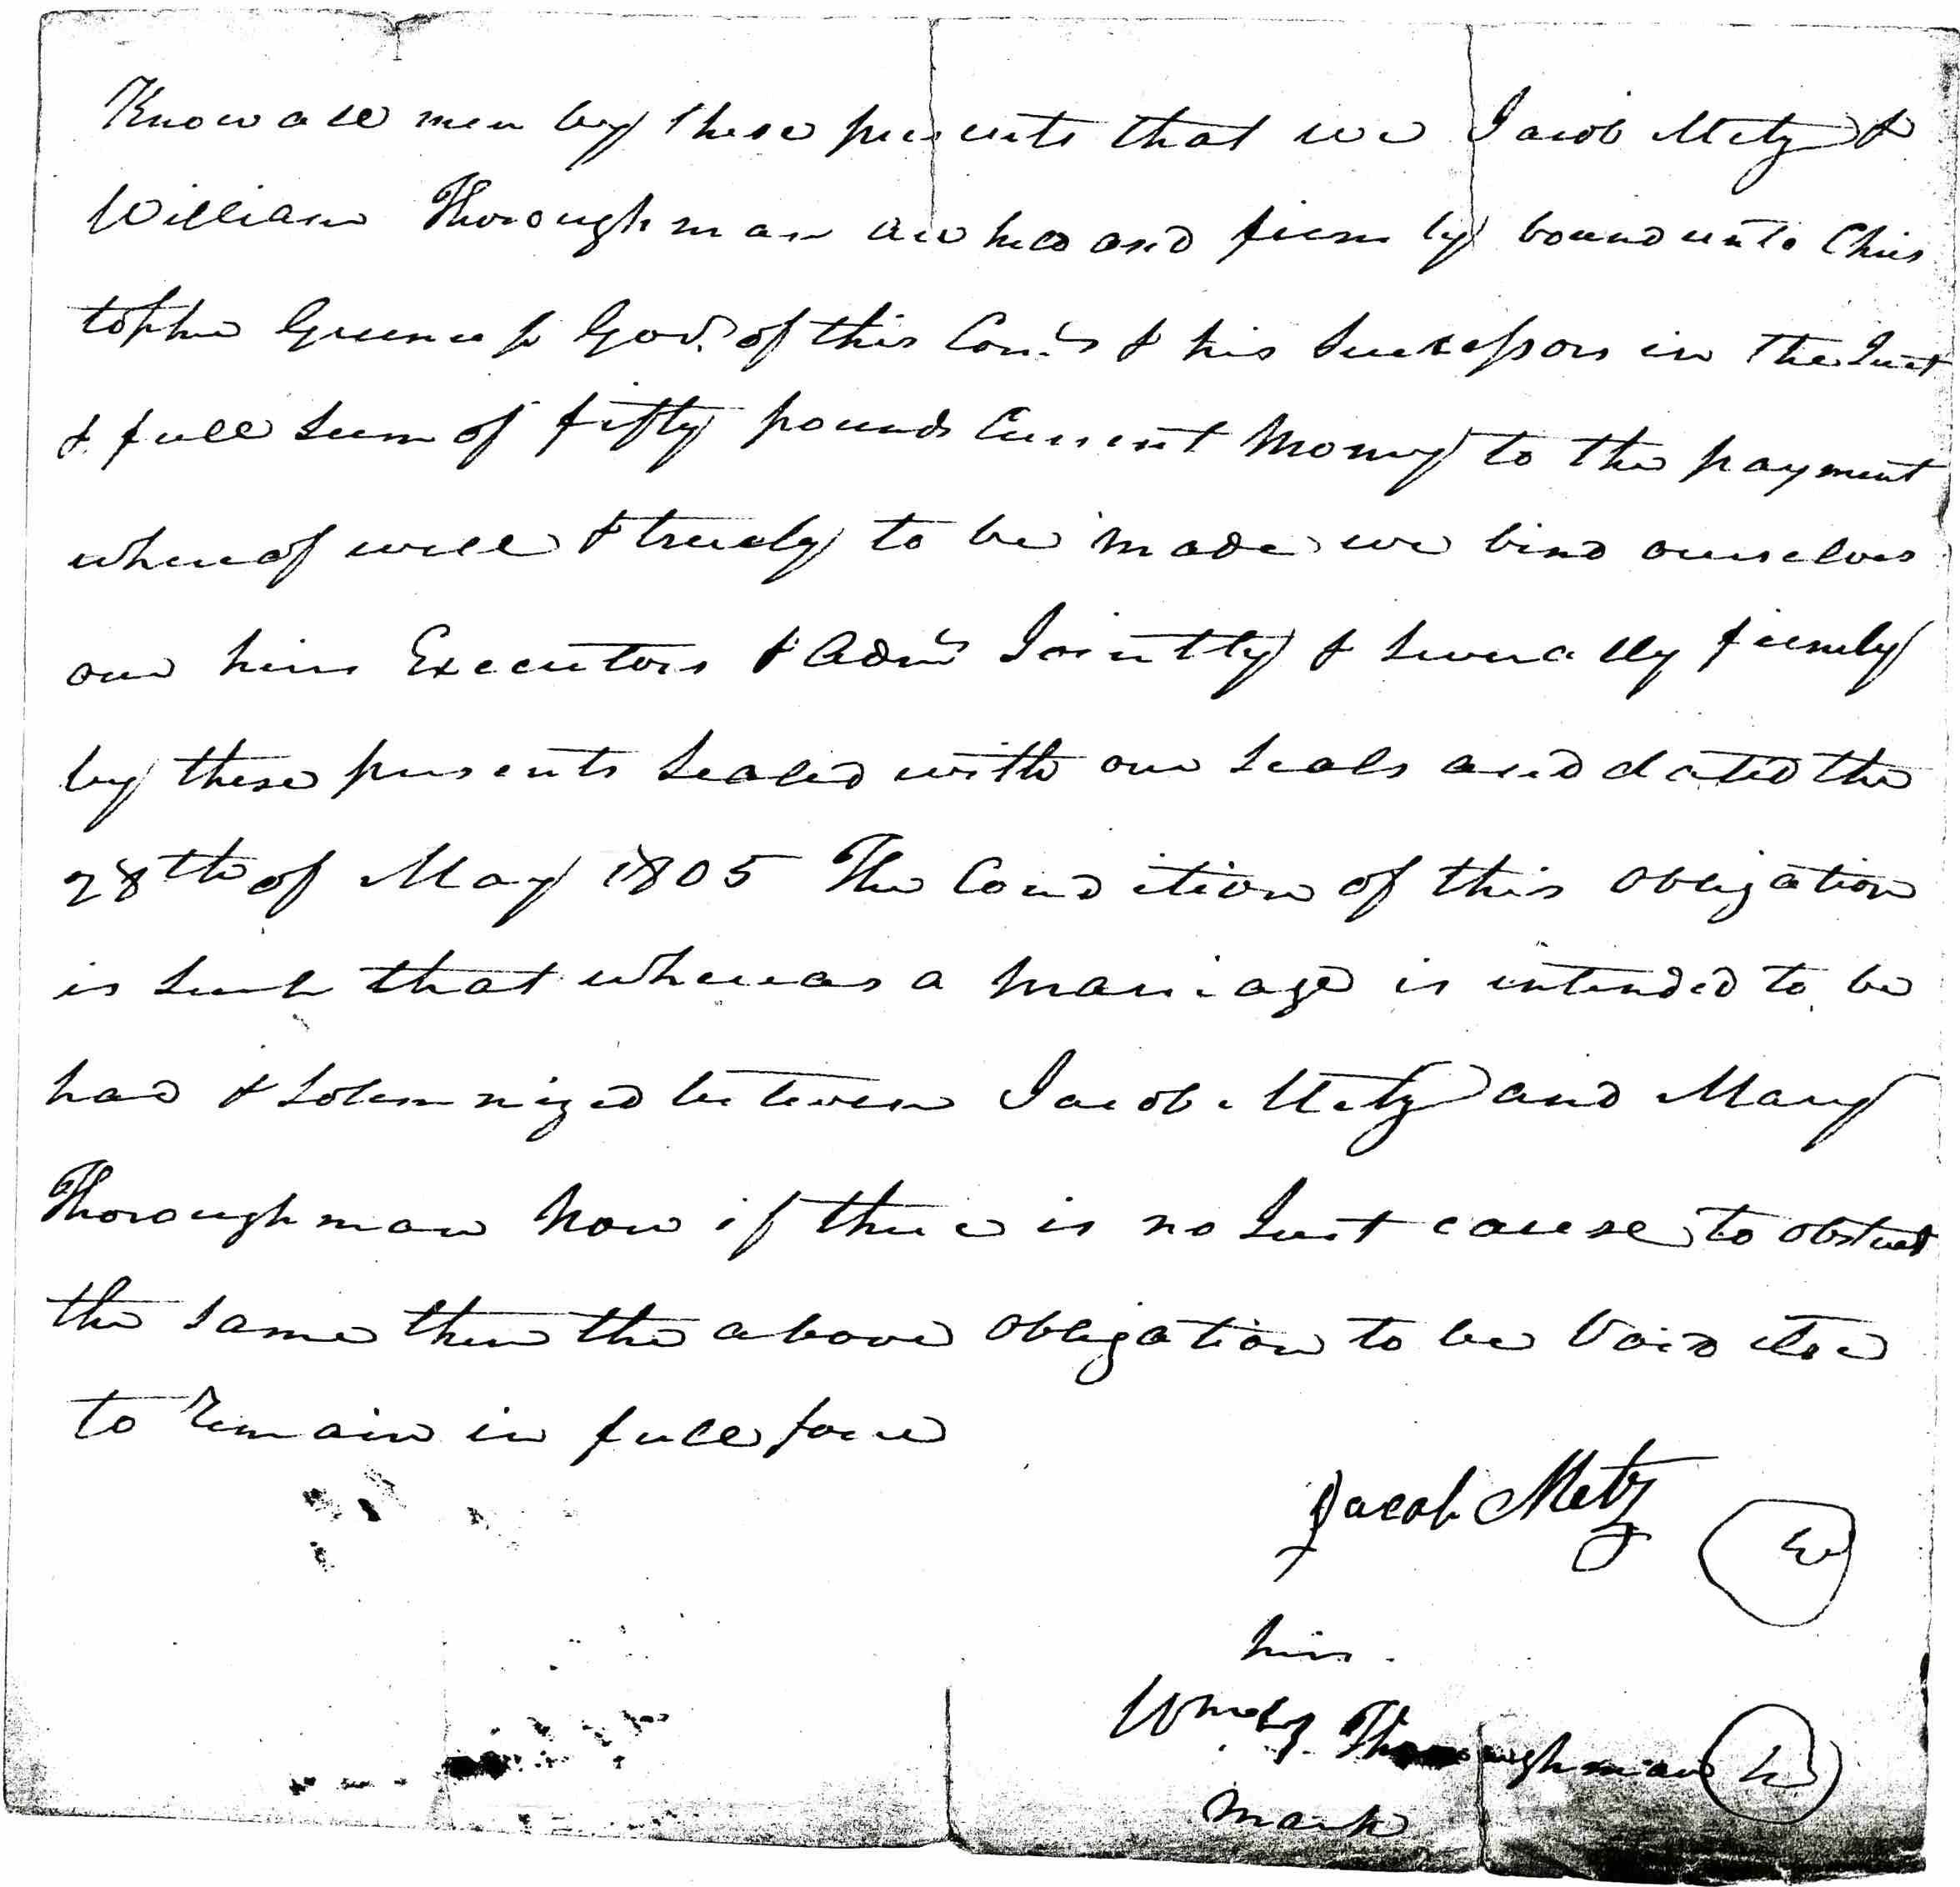 Know all men by these presents that we Jacob Metz &
William Thoroughman are held and firmly bound unto Chris
topher Greenup Gov.r of this Com.th & his Successors in the Just
& full Sum of fifty pounds Current Money to the payment
whereof well & truely to be made we bind ourselves
our heirs Executors & Adm.rs Jointly & Severally firmly
by these presents Sealed with our Seals and dated the
28th of May 1805 The Condition of this obligation
is Such that whereas a Marriage is intended to be
had & Solemnized between Jacob Metz and Mary
Thoroughman Now if there is no Just cause to obstruct
the Same then the above obligation to be Void else
to Remain in full force
Jacob Metz
his
Wm Thoroughman
mark